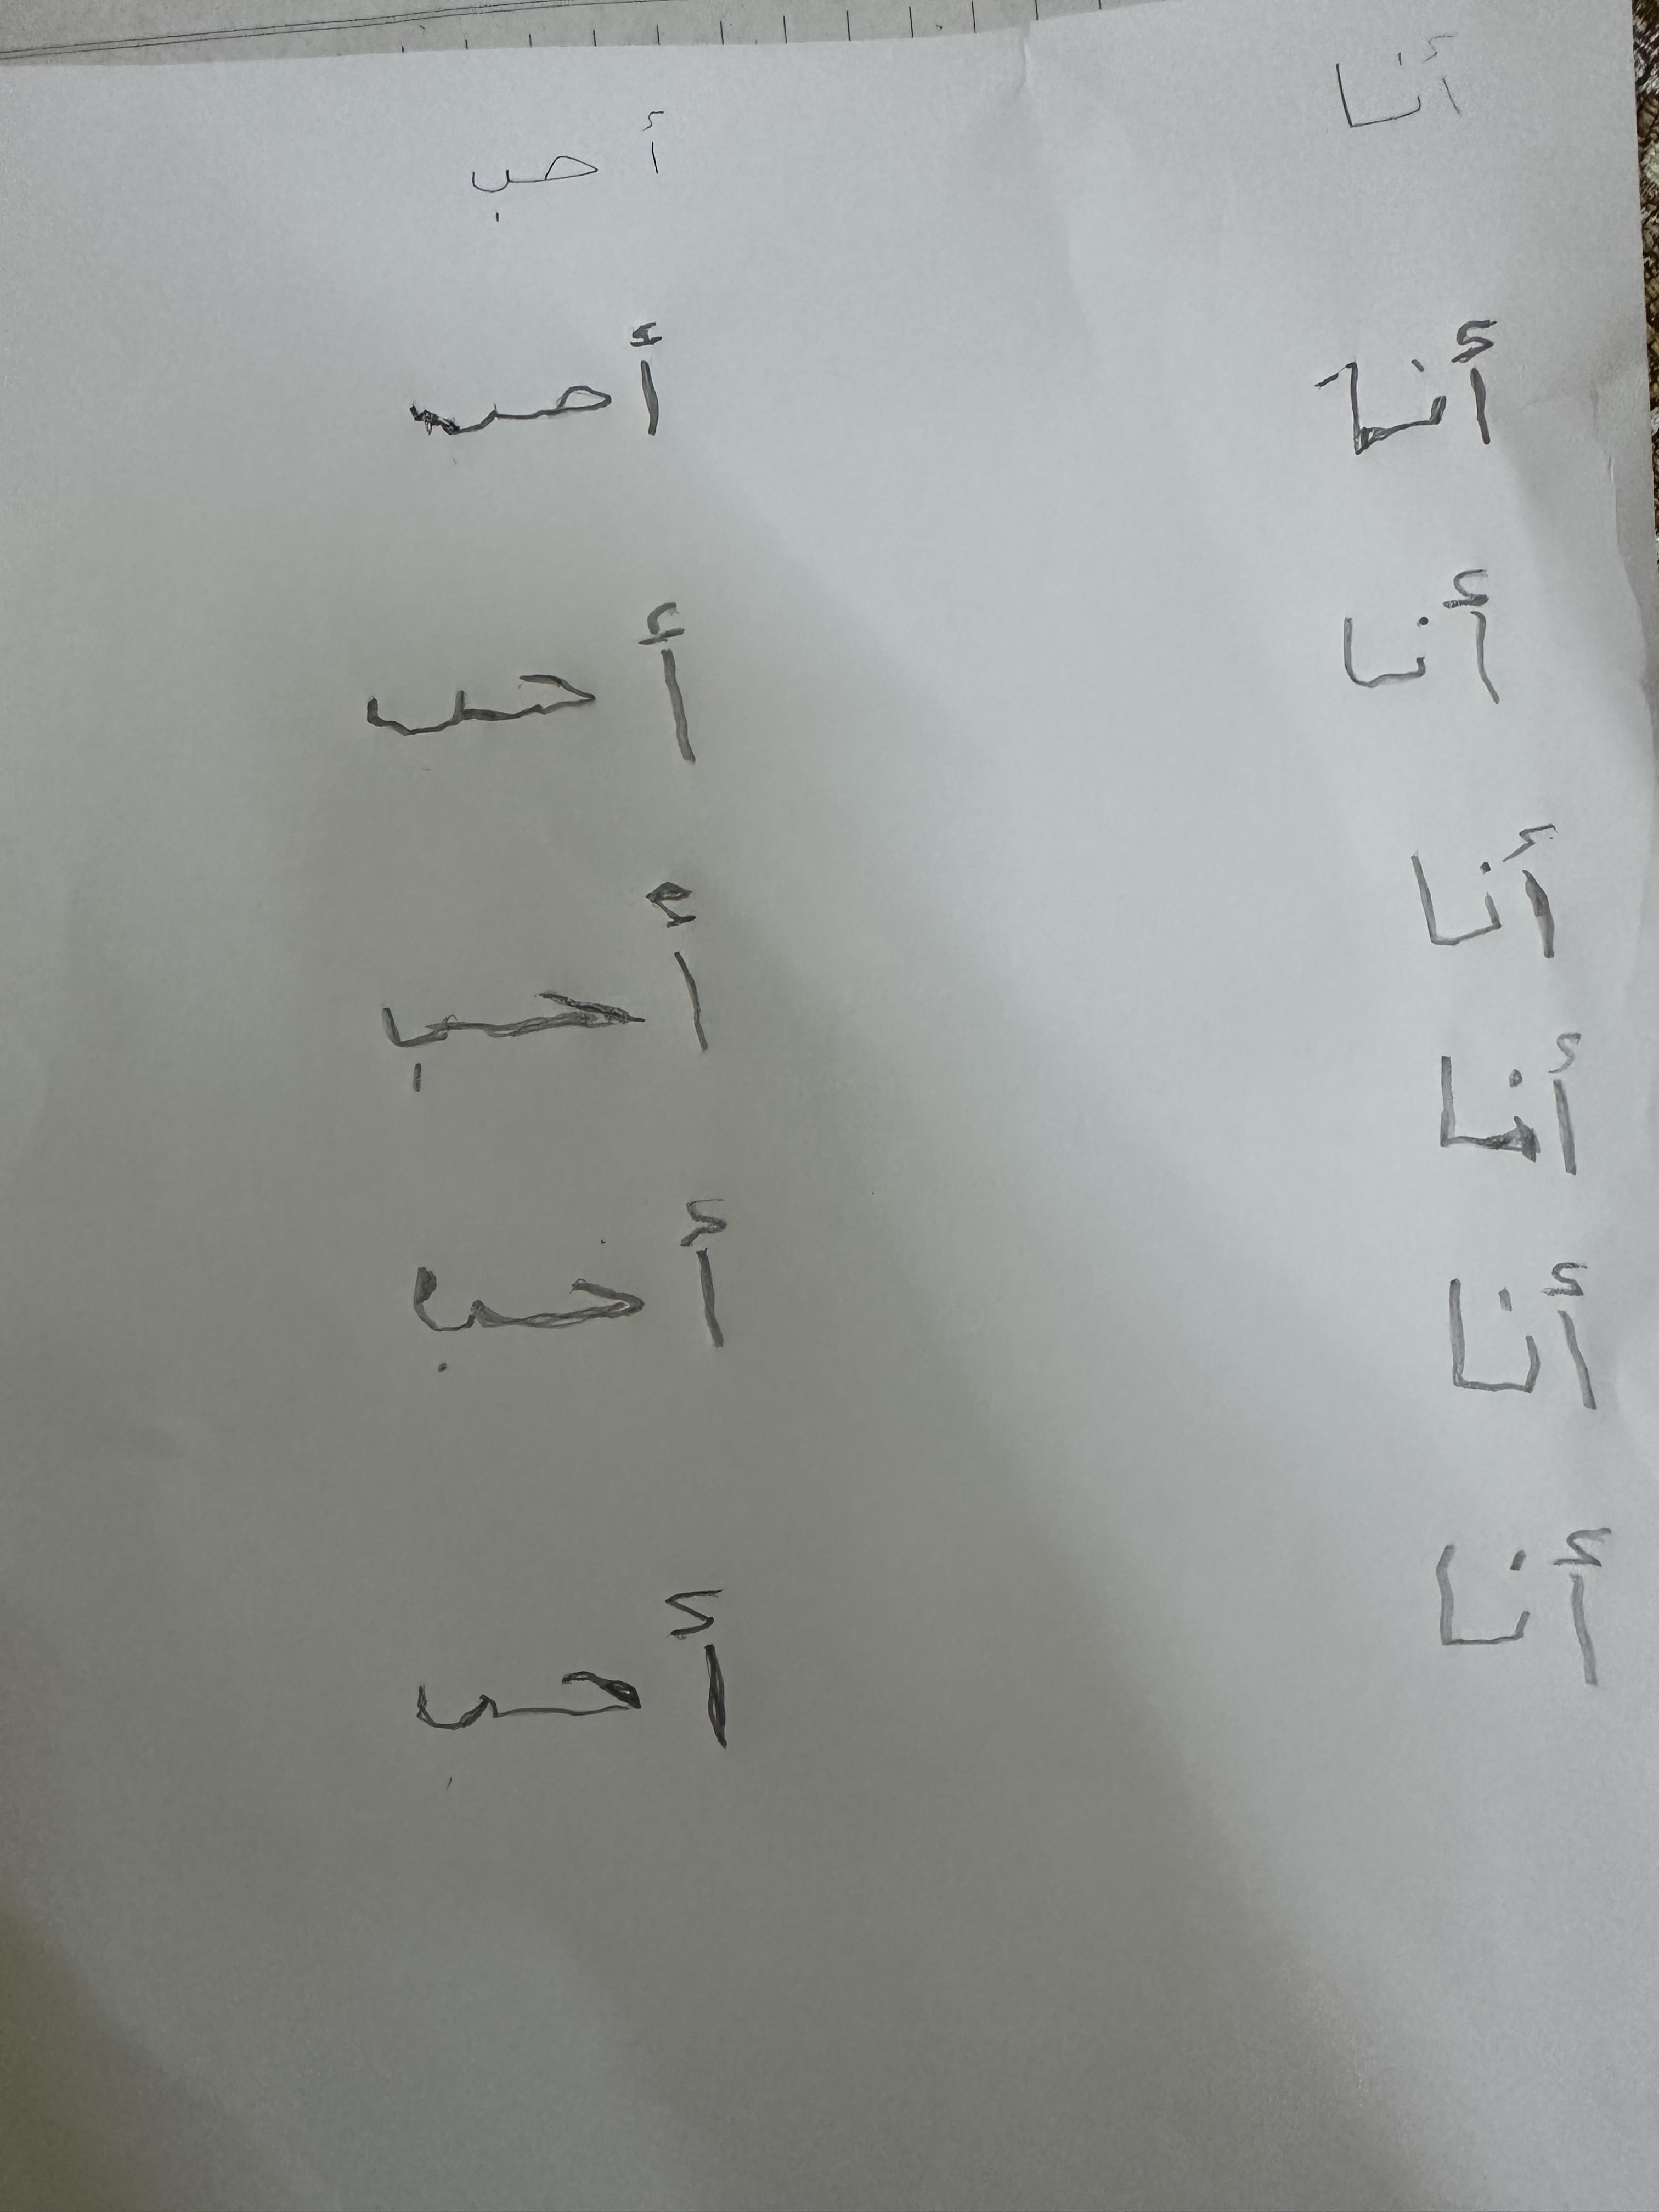 أنا أحب
أنا أحب
أنا أحب
أنا أحب
أنا أحب
أنا أحب
أنا